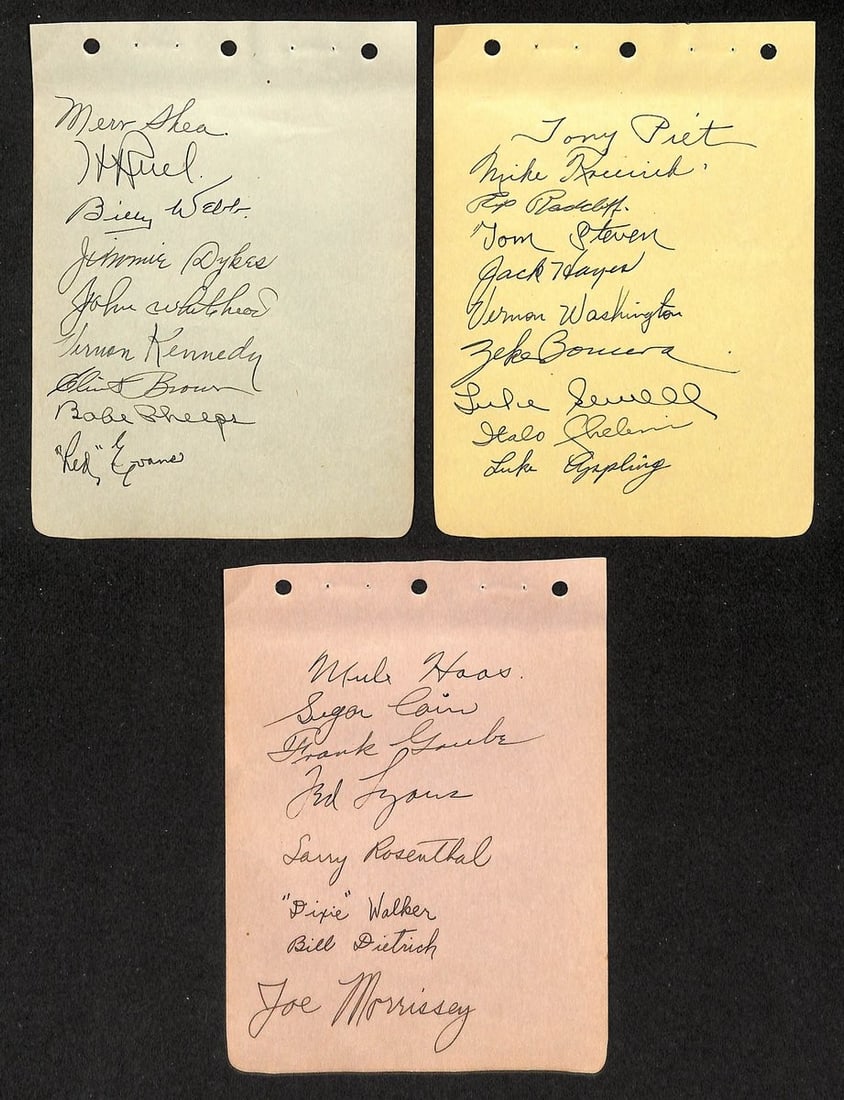 Merv Shea.
H Ruel.
Billy Webb.
Jimmie Dykes
John Whitehead
Vernon Kennedy
Clint Brown
Babe Phelps
"Red" Evans
Tony Piet
Mike Kreevich
Rip Radcliff.
Tom Steven
Jack Hayes
Vernon Washington
Zeke Bonura
Luke Sewell
Italo Chelini
Luke Appling
Mule Haas.
Sugar Cain
Frank Grube
Ted Lyons
Larry Rosenthal
"Dixie" Walker
Bill Dietrich
Joe Morrissey